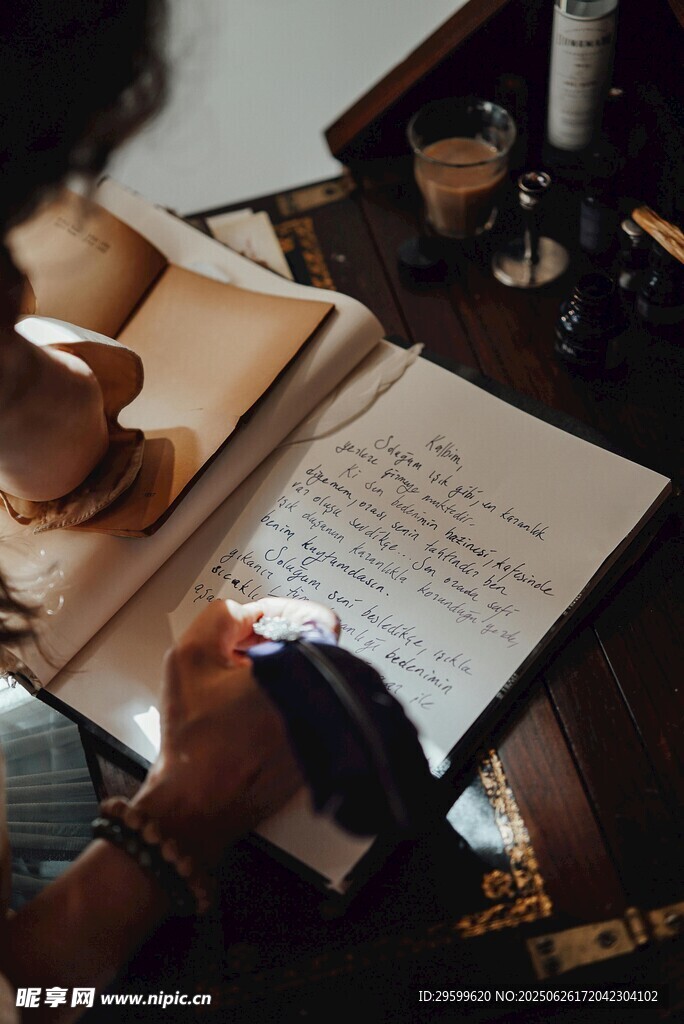 Kalbim,
Soluğum ışık gibi, en karanlık
yerlere girmeye muktedir.
Ki sen bedenimin hazinesi, kafesinde
diyemem, orası senin tahtından ben
var oluşu sevdikçe... Sen orada safi
ışık düşünen karanlıkla korunduğu yerde,
benim kuytumdasın.
Soluğum seni besledikçe, ışıkla
yıkanır
sıcaklı bedenimin
ile
昵享网 www.nipic.cn
ID:29599620 NO:20250626172042304102